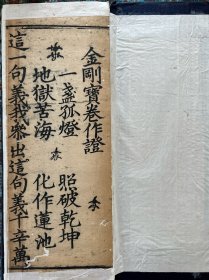 金剛寶卷作證
一盞孤燈　照破乾坤
地獄苦海　化作蓮池
這一句義我叅出這句義千辛萬